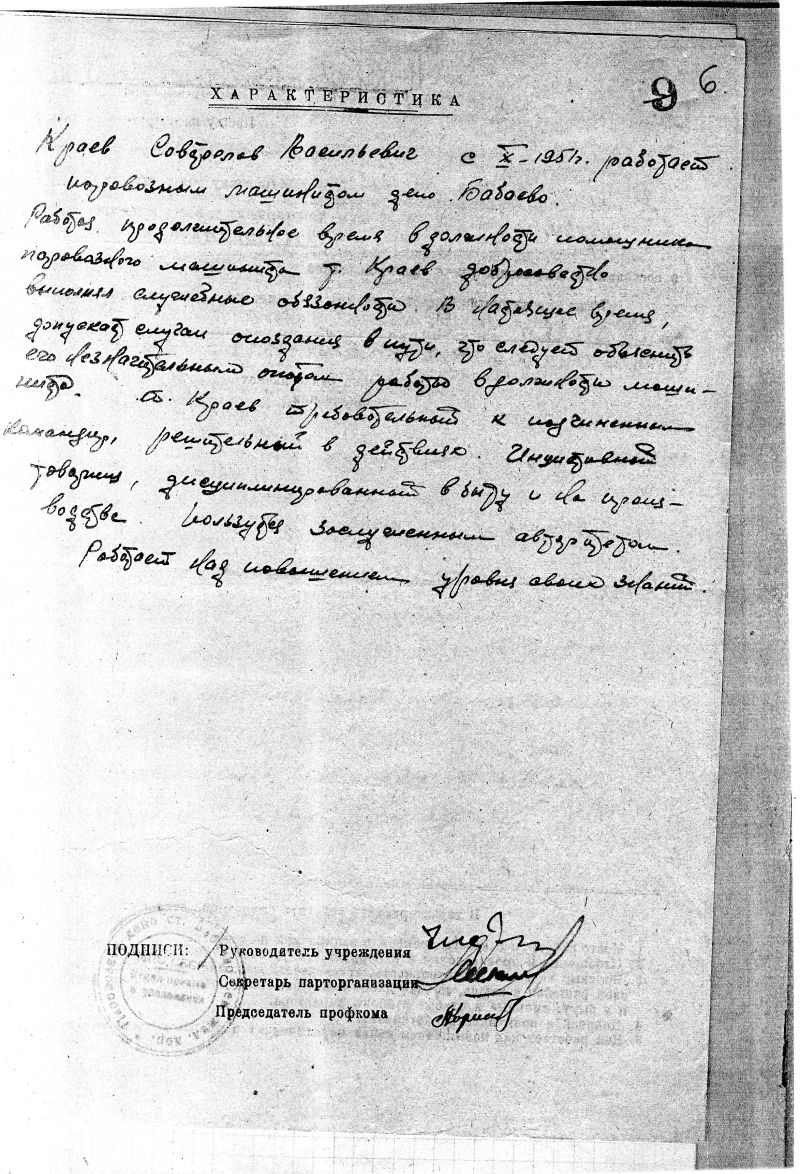 ХАРАКТЕРИСТИКА
9 6
Краев Васильевич с X-1951г. работает
паровозным машинистом депо Бабаево.
Работая продолжительное время в должности помощника
паровозного машиниста т. Краев добросовестно
выполнял служебные обязанности. В настоящее время,
допускает случаи опоздания в пути, что следует объяснить
его незначительным опытом работы в должности маши-
ниста. т. Краев требовательный к подчиненным
командир, решительный в действиях.
товарищ, дисциплинированный в быту и на произ-
водстве. Пользуется заслуженным авторитетом.
Работает над повышением уровня своих знаний.
ПОДПИСИ: Руководитель учреждения
Секретарь парторганизации
Председатель профкома